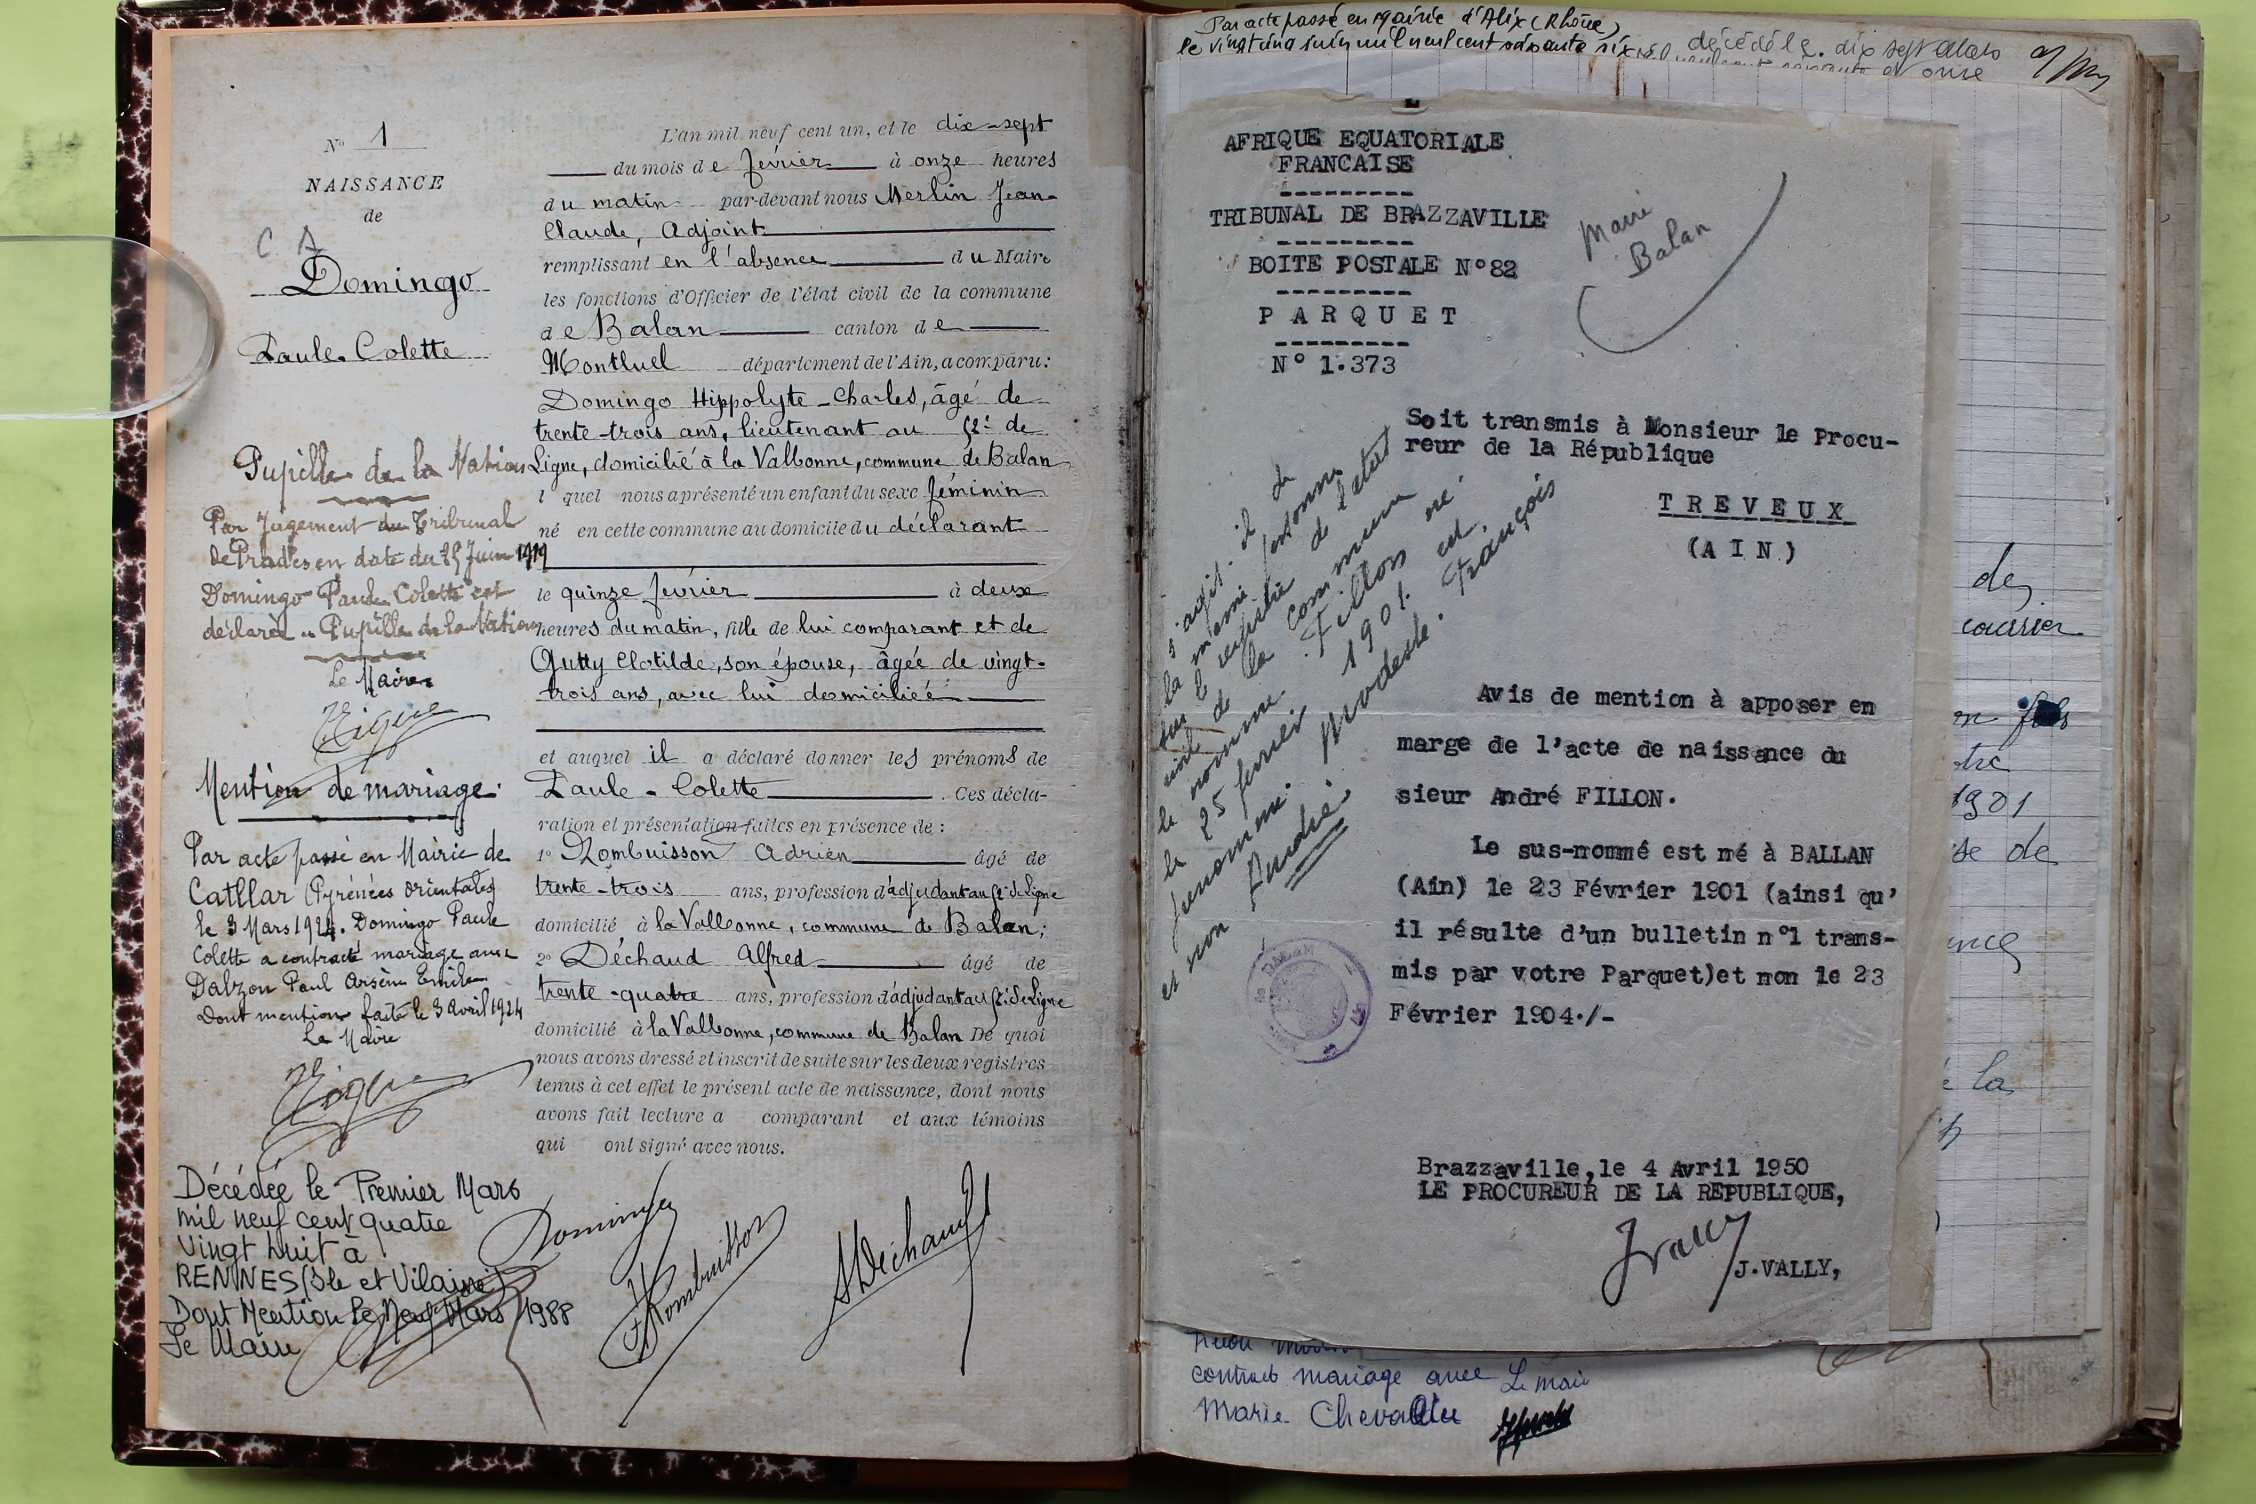 N° 1
NAISSANCE
de
C A
Domingo
Paule-Colette
Pupille de la Nation
Par Jugement du Tribunal
de Prades en date du 25 Juin 1919
Domingo Paule Colette est
déclarée "Pupille de la Nation
Le Maire
Mention de mariage.
Par acte passé en Mairie de
Catllar (Pyrénées Orientales)
le 3 Mars 1924. Domingo Paule
Colette a contracté mariage avec
Dalzon Paul Arsène Emile
Dont mention faite le 3 Avril 1924
Le Maire
Décédée le Premier Mars
mil neuf cent quatre
vingt huit à
RENNES (Ille et Vilaine)
Dont Mention le Neuf Mars 1988
Le Maire
L'an mil neuf cent un, et le dix-sept
du mois de février à onze heures
du matin par-devant nous Merlin Jean-
Claude, Adjoint
remplissant en l'absence du Maire
les fonctions d'Officier de l'état civil de la commune
de Balan canton de
Montluel département de l'Ain, a comparu :
Domingo Hippolyte-Charles, âgé de
trente-trois ans, lieutenant au 52e de
Ligne, domicilié à la Valbonne, commune de Balan
l quel nous a présenté un enfant du sexe féminin
né en cette commune au domicile du déclarant
le quinze février à deux
heures du matin, fille de lui comparant et de
Gutty Clotilde, son épouse, âgée de vingt-
trois ans, avec lui domiciliée
et auquel il a déclaré donner les prénoms de
Paule-Colette. Ces décla-
ration et présentation faites en présence de :
1° Rombuisson Adrien âgé de
trente-trois ans, profession d'adjudant au 52e de Ligne
domicilié à la Valbonne, commune de Balan ;
2° Déchaud Alfred âgé de
trente-quatre ans, profession d'adjudant au 52e de Ligne
domicilié à la Valbonne, commune de Balan De quoi
nous avons dressé et inscrit de suite sur les deux registres
tenus à cet effet le présent acte de naissance, dont nous
avons fait lecture a comparant et aux témoins
qui ont signé avec nous.
Domingo
Rombuisson
ADéchaud
Par acte passé en Mairie d'Alix (Rhône)
le vingt cinq juin mil neuf cent soixante six
décédé le dix sept Mars
onze
AFRIQUE EQUATORIALE
FRANCAISE
TRIBUNAL DE BRAZZAVILLE
BOITE POSTALE N°82
PARQUET
N° 1.373
Maire
Balan
Soit transmis à Monsieur le Procu-
reur de la République
TREVEUX
(AIN)
s'agit-il de
la même personne
sur le registre de l'état
civil de la commune
le nommé Fillon né
le 25 février 1901 est
prénommé Modeste. François
et non André.
Avis de mention à apposer en
marge de l'acte de naissance du
sieur André FILLON.
Le sus-nommé est né à BALLAN
(Ain) le 23 Février 1901 (ainsi qu'
il résulte d'un bulletin n°1 trans-
mis par votre Parquet)et non le 23
Février 1904./-
Brazzaville,le 4 Avril 1950
LE PROCUREUR DE LA REPUBLIQUE,
J.VALLY,
de
courrier
1901
de
la
contracté mariage avec Le maire
Marie Chevallier